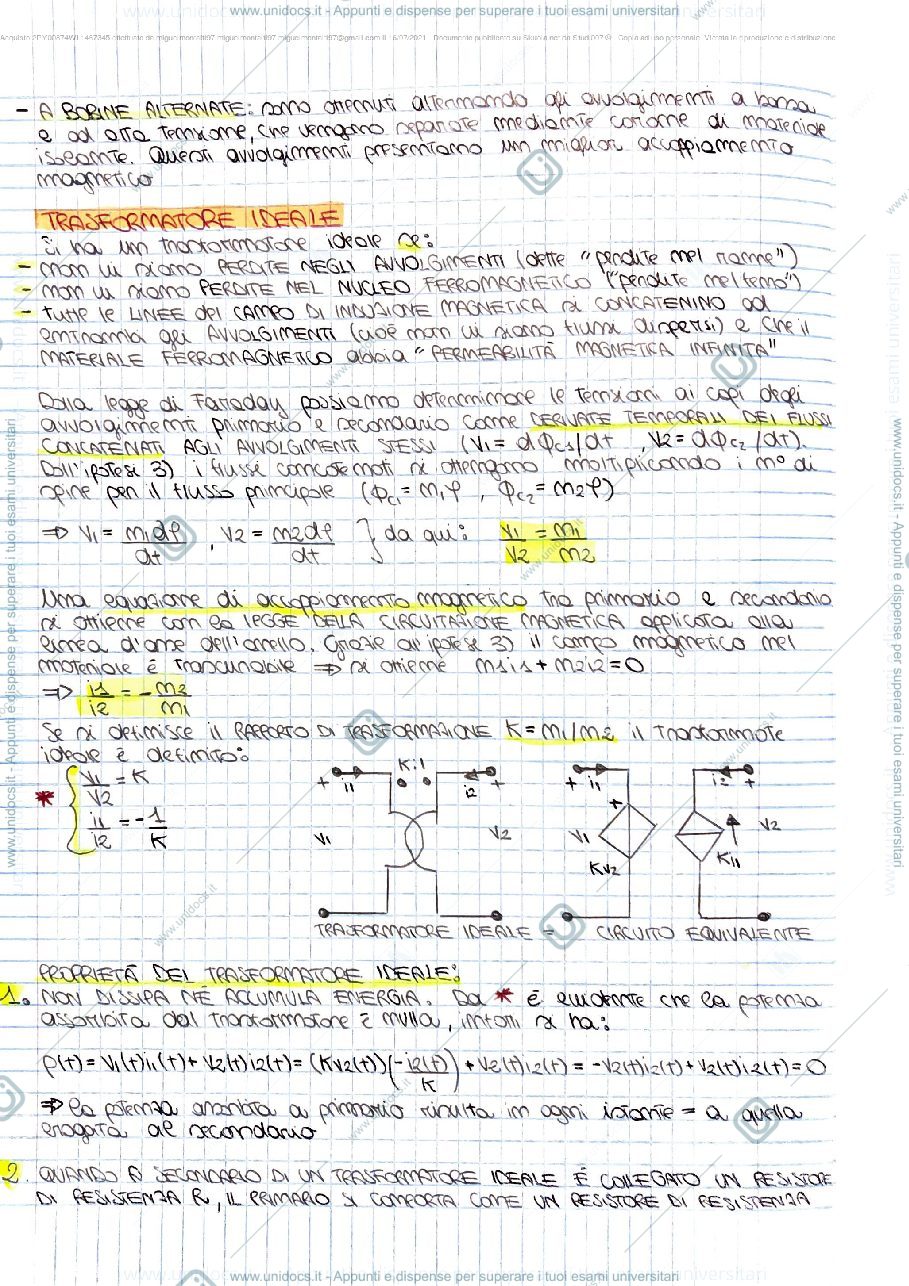 www.unidocs.it - Appunti e dispense per superare i tuoi esami universitari
- A BOBINE ALTERNATE: sono ottenuti alternando gli avvolgimenti a bassa
e ad alta tensione, che vengono separate mediante corone di materiale
isolante. Questi avvolgimenti presentano un miglior accoppiamento
magnetico
TRASFORMATORE IDEALE
Si ha un trasformatore ideale se:
- non vi siano PERDITE NEGLI AVVOLGIMENTI (dette "perdite nel rame")
- non vi siano PERDITE NEL NUCLEO FERROMAGNETICO ("perdite nel ferro")
- tutte le LINEE del CAMPO DI INDUZIONE MAGNETICA si CONCATENINO ad
entrambi gli AVVOLGIMENTI (cioè non vi siano flussi dispersi) e che il
MATERIALE FERROMAGNETICO abbia "PERMEABILITÀ MAGNETICA INFINITA"
Dalla legge di Faraday possiamo determinare le tensioni ai capi degli
avvolgimenti primario e secondario come DERIVATE TEMPORALI DEI FLUSSI
CONCATENATI AGLI AVVOLGIMENTI STESSI (V1 = dΦc1/dt , V2 = dΦc2/dt).
Dall'ipotesi 3) i flussi concatenati si ottengono moltiplicando i n° di
spire per il flusso principale (Φc1 = n1φ , Φc2 = n2φ)
⇒ V1 = n1dφ/dt , V2 = n2dφ/dt } da qui: V1/V2 = n1/n2
Una equazione di accoppiamento magnetico tra primario e secondario
si ottiene con la LEGGE DELLA CIRCUITAZIONE MAGNETICA applicata alla
linea d'asse dell'anello. Grazie all'ipotesi 3) il campo magnetico nel
materiale è trascurabile ⇒ si ottiene n1i1 + n2i2 = 0
⇒ i1/i2 = - n2/n1
Se si definisce il RAPPORTO DI TRASFORMAZIONE K = n1/n2 il trasformatore
ideale è definito:
* { V1/V2 = K
i1/i2 = - 1/K
K:1
+ i1 i2 +
V1 V2
+ i1 + i2 +
V1 KV2 Ki1 V2
TRASFORMATORE IDEALE = CIRCUITO EQUIVALENTE
PROPRIETÀ DEL TRASFORMATORE IDEALE:
1. NON DISSIPA NÉ ACCUMULA ENERGIA. Da * è evidente che la potenza
assorbita dal trasformatore è nulla, infatti si ha:
p(t) = V1(t)i1(t) + V2(t)i2(t) = (KV2(t))(-i2(t)/K) + V2(t)i2(t) = -V2(t)i2(t) + V2(t)i2(t) = 0
⇒ la potenza assorbita a primario risulta in ogni istante = a quella
erogata al secondario
2. QUANDO A SECONDARIO DI UN TRASFORMATORE IDEALE È COLLEGATO UN RESISTORE
DI RESISTENZA R, IL PRIMARIO SI COMPORTA COME UN RESISTORE DI RESISTENZA
www.unidocs.it - Appunti e dispense per superare i tuoi esami universitari